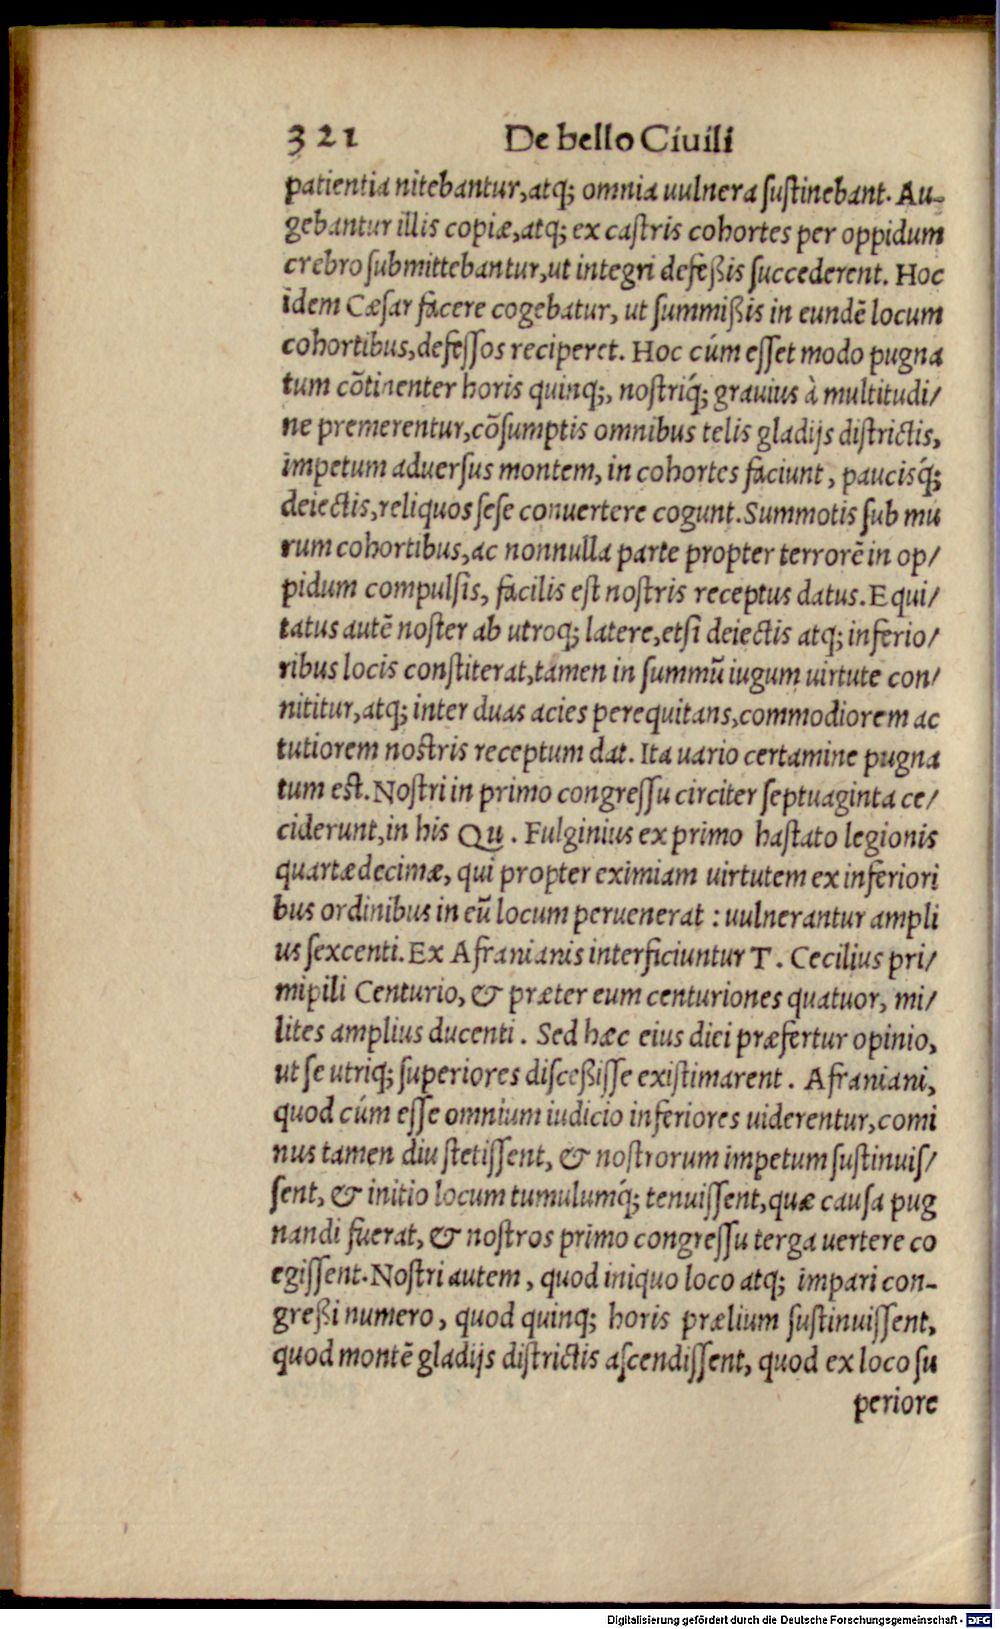 321 De bello Ciuili
patientia nitebantur,atq; omnia uulnera ſuſtinebant. Au-
gebantur illis copiæ,atq; ex caſtris cohortes per oppidum
crebro ſubmittebantur,ut integri defeßis ſuccederent. Hoc
idem Cæſar facere cogebatur, ut ſummißis in eundē locum
cohortibus,defeſſos reciperet. Hoc cúm eſſet modo pugna
tum cōtinenter horis quinq;, noſtriq́; grauius à multitudi/
ne premerentur,cōſumptis omnibus telis gladijs diſtrictis,
impetum aduerſus montem, in cohortes faciunt, paucisq́;
deiectis,reliquos ſeſe conuertere cogunt.Summotis ſub mu
rum cohortibus,ac nonnulla parte propter terrorē in op/
pidum compulſis, facilis eſt noſtris receptus datus.Equi/
tatus autē noſter ab utroq; latere,etſi deiectis atq; inferio/
ribus locis conſtiterat,tamen in ſummū iugum uirtute con/
nititur,atq; inter duas acies perequitans,commodiorem ac
tutiorem noſtris receptum dat. Ita uario certamine pugna
tum eſt.Noſtri in primo congreſſu circiter ſeptuaginta ce/
ciderunt,in his Qu. Fulginius ex primo haſtato legionis
quartædecimæ, qui propter eximiam uirtutem ex inferiori
bus ordinibus in eū locum peruenerat : uulnerantur ampli
us ſexcenti.Ex Afranianis interficiuntur T. Cecilius pri/
mipili Centurio, & præter eum centuriones quatuor, mi/
lites amplius ducenti. Sed hæc eius diei præfertur opinio,
ut ſe utriq; ſuperiores diſceßiſſe exiſtimarent. Afraniani,
quod cúm eſſe omnium iudicio inferiores uiderentur,comi
nus tamen diu ſtetiſſent, & noſtrorum impetum ſuſtinuiſ/
ſent, & initio locum tumulumq́; tenuiſſent,quæ cauſa pug
nandi fuerat, & noſtros primo congreſſu terga uertere co
egiſſent.Noſtri autem, quod iniquo loco atq; impari con-
greßi numero, quod quinq; horis prælium ſuſtinuiſſent,
quod montē gladijs diſtrictis aſcendiſſent, quod ex loco ſu
periore
Digitalisierung gefördert durch die Deutsche Forschungsgemeinschaft - DFG